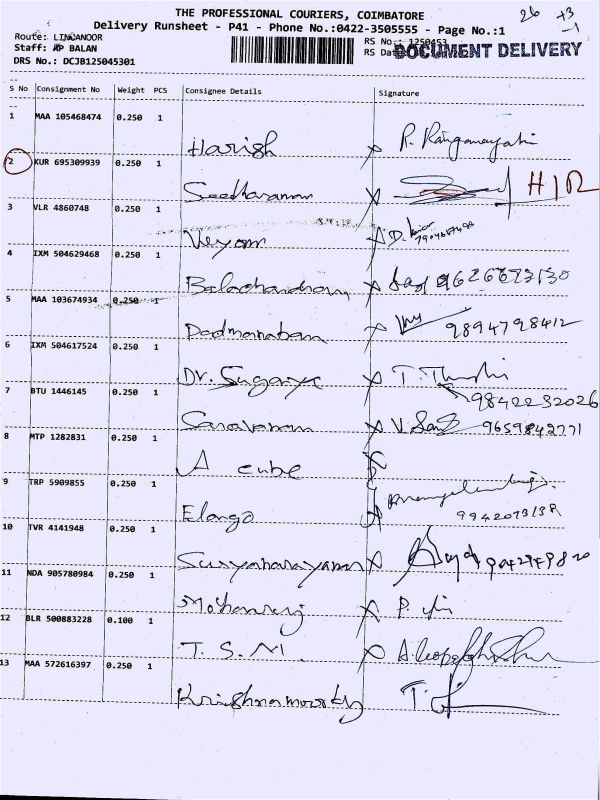 THE PROFESSIONAL COURIERS, COIMBATORE
26 +3
-1
Delivery Runsheet - P41 - Phone No.:0422-3505555 - Page No.:1
Route: LINGANOOR
RS No.: 1250453
Staff: AP BALAN
RS Da
DOCUMENT DELIVERY
DRS No.: DCJB125045301
S No Consignment No Weight PCS Consignee Details Signature
1 MAA 105468474 0.250 1
Harish x R. Ranganayaki
2 KUR 695309939 0.250 1
Seetharaman x H/R
3 VLR 4860748 0.250 1
x D.
4 IXM 504629468 0.250 1
Balachandran x 9626673130
5 MAA 103674934 0.250 1
Padmanaban x 9894798412
6 IXM 504617524 0.250 1
Dr. Suganya x T.
9842232026
7 BTU 1446145 0.250 1
Saravanan x V 9659842771
8 MTP 1282831 0.250 1
A cube
9 TRP 5909855 0.250 1
Elango
10 TVR 4141948 0.250 1
Suryanarayanan x
11 NDA 905780984 0.250 1
Mohanraj x P.
12 BLR 500883228 0.100 1
T. S. M. x
13 MAA 572616397 0.250 1
Krishnamoorthy T.